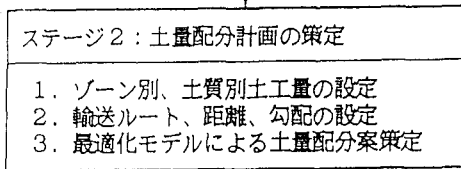 ステージ2：土量配分計画の策定
1．ゾーン別、土質別土工量の設定
2．輸送ルート、距離、勾配の設定
3．最適化モデルによる土量配分案策定